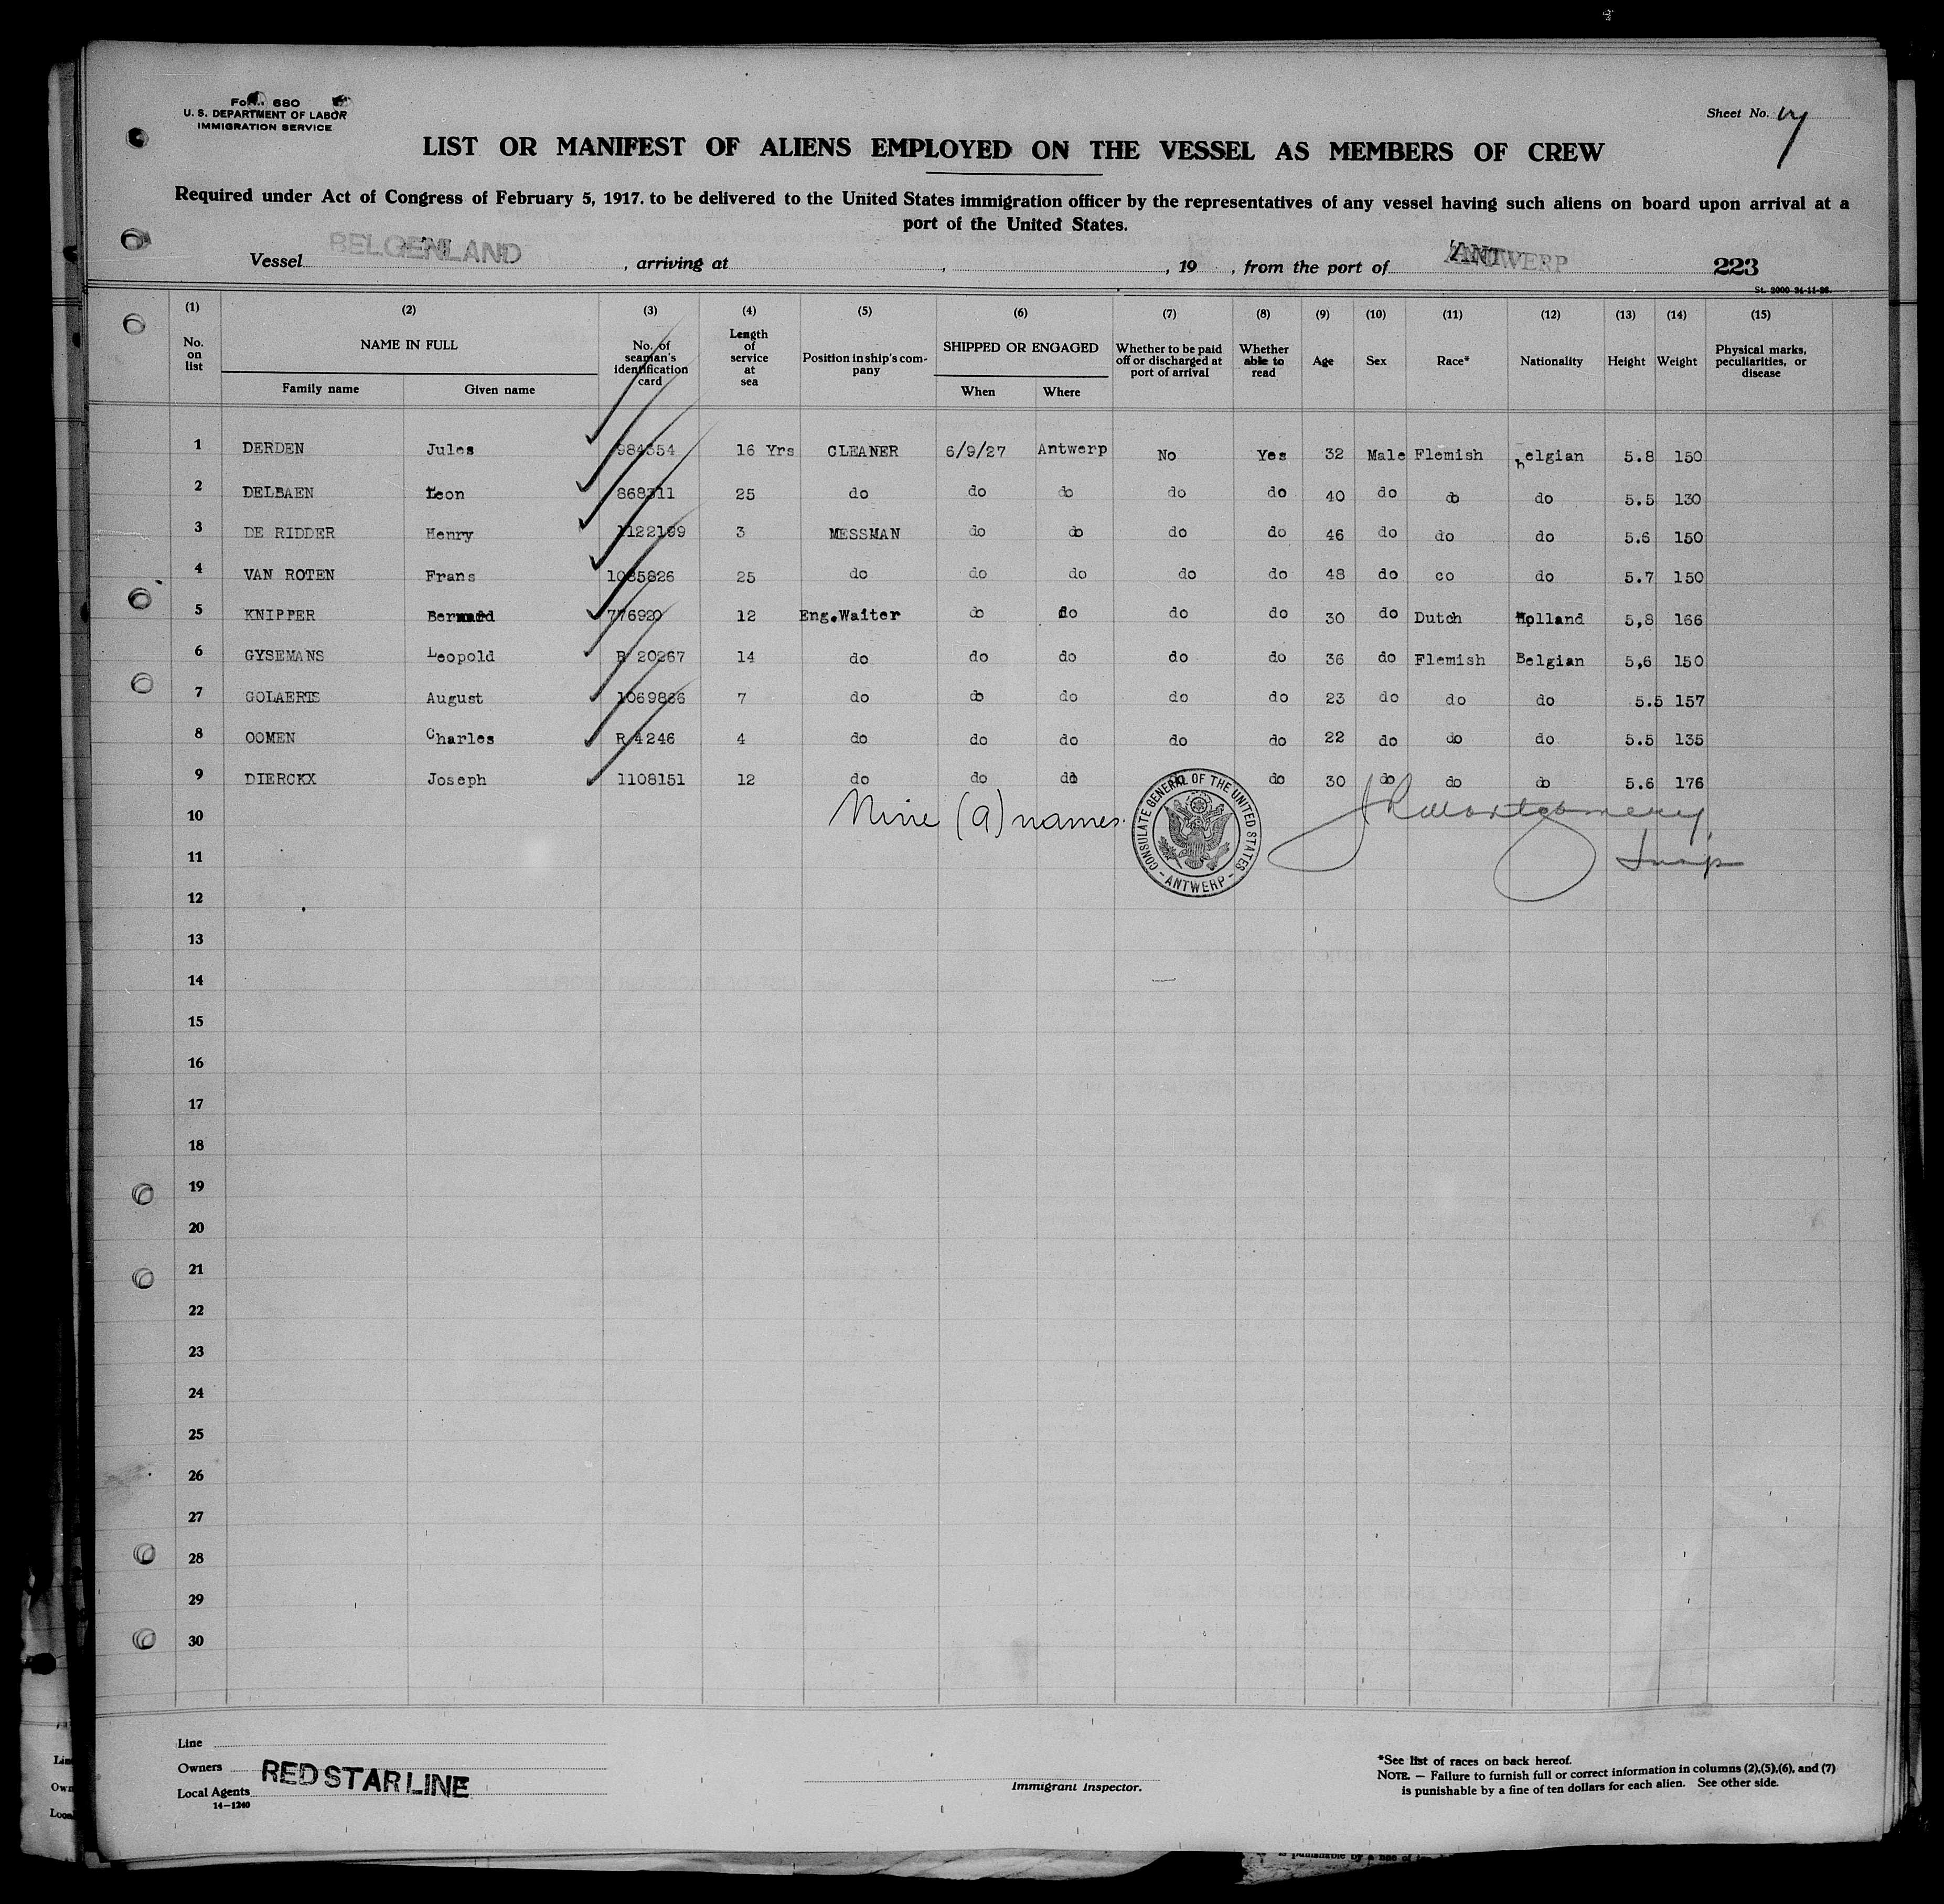 Form 680
U. S. DEPARTMENT OF LABOR
IMMIGRATION SERVICE
Sheet No.
LIST OR MANIFEST OF ALIENS EMPLOYED ON THE VESSEL AS MEMBERS OF CREW
Required under Act of Congress of February 5, 1917. to be delivered to the United States immigration officer by the representatives of any vessel having such aliens on board upon arrival at a
port of the United States.
Vessel BELGENLAND , arriving at , , 19 , from the port of ANTWERP 223
St. 2000 24-11-26.
(1) (2) (3) (4) (5) (6) (7) (8) (9) (10) (11) (12) (13) (14) (15)
No. on list NAME IN FULL Family name Given name No. of seaman's identification card Length of service at sea Position in ship's company SHIPPED OR ENGAGED When Where Whether to be paid off or discharged at port of arrival Whether able to read Age Sex Race* Nationality Height Weight Physical marks, peculiarities, or disease
1 DERDEN Jules 984354 16 Yrs CLEANER 6/9/27 Antwerp No Yes 32 Male Flemish Belgian 5.8 150
2 DELBAEN Leon 868311 25 do do do do do 40 do do do 5.5 130
3 DE RIDDER Henry 1122199 3 MESSMAN do do do do 46 do do do 5.6 150
4 VAN ROTEN Frans 1035826 25 do do do do do 48 do co do 5.7 150
5 KNIPPER Bernard 776920 12 Eng.Waiter do do do do 30 do Dutch Holland 5,8 166
6 GYSEMANS Leopold R 20267 14 do do do do do 36 do Flemish Belgian 5,6 150
7 GOLAERTS August 1069886 7 do do do do do 23 do do do 5.5 157
8 OOMEN Charles R 4246 4 do do do do do 22 do do do 5.5 135
9 DIERCKX Joseph 1108151 12 do do do do do 30 do do do 5.6 176
10 Nine (9) names. JRMontgomery,
11
12
CONSULATE GENERAL OF THE UNITED STATES - ANTWERP -
13
14
15
16
17
18
19
20
21
22
23
24
25
26
27
28
29
30
Line
Owners RED STAR LINE
Local Agents
14—1240
Immigrant Inspector.
*See list of races on back hereof.
NOTE. — Failure to furnish full or correct information in columns (2),(5),(6), and (7)
is punishable by a fine of ten dollars for each alien. See other side.